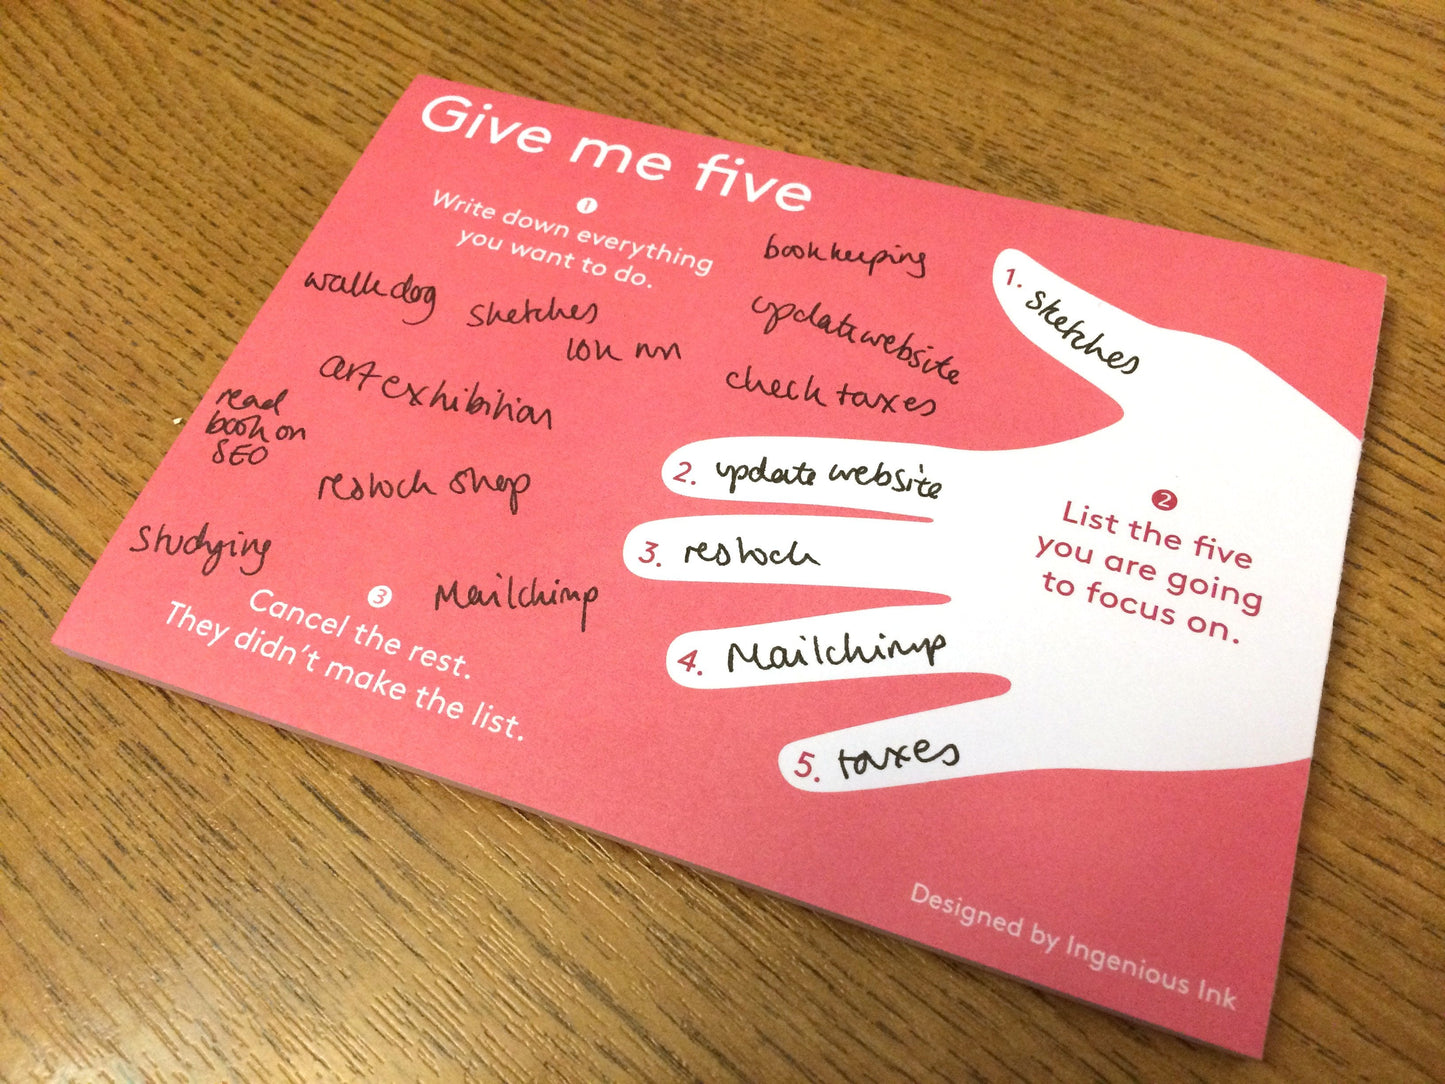 Give me five
1
Write down everything
you want to do.
walk dog
sketches
10k run
art exhibition
read
book on
SEO
restock shop
studying
Mailchimp
bookkeeping
update website
check taxes
3
Cancel the rest.
They didn't make the list.
1. sketches
2. update website
3. restock
4. Mailchimp
5. taxes
2
List the five
you are going
to focus on.
Designed by Ingenious Ink